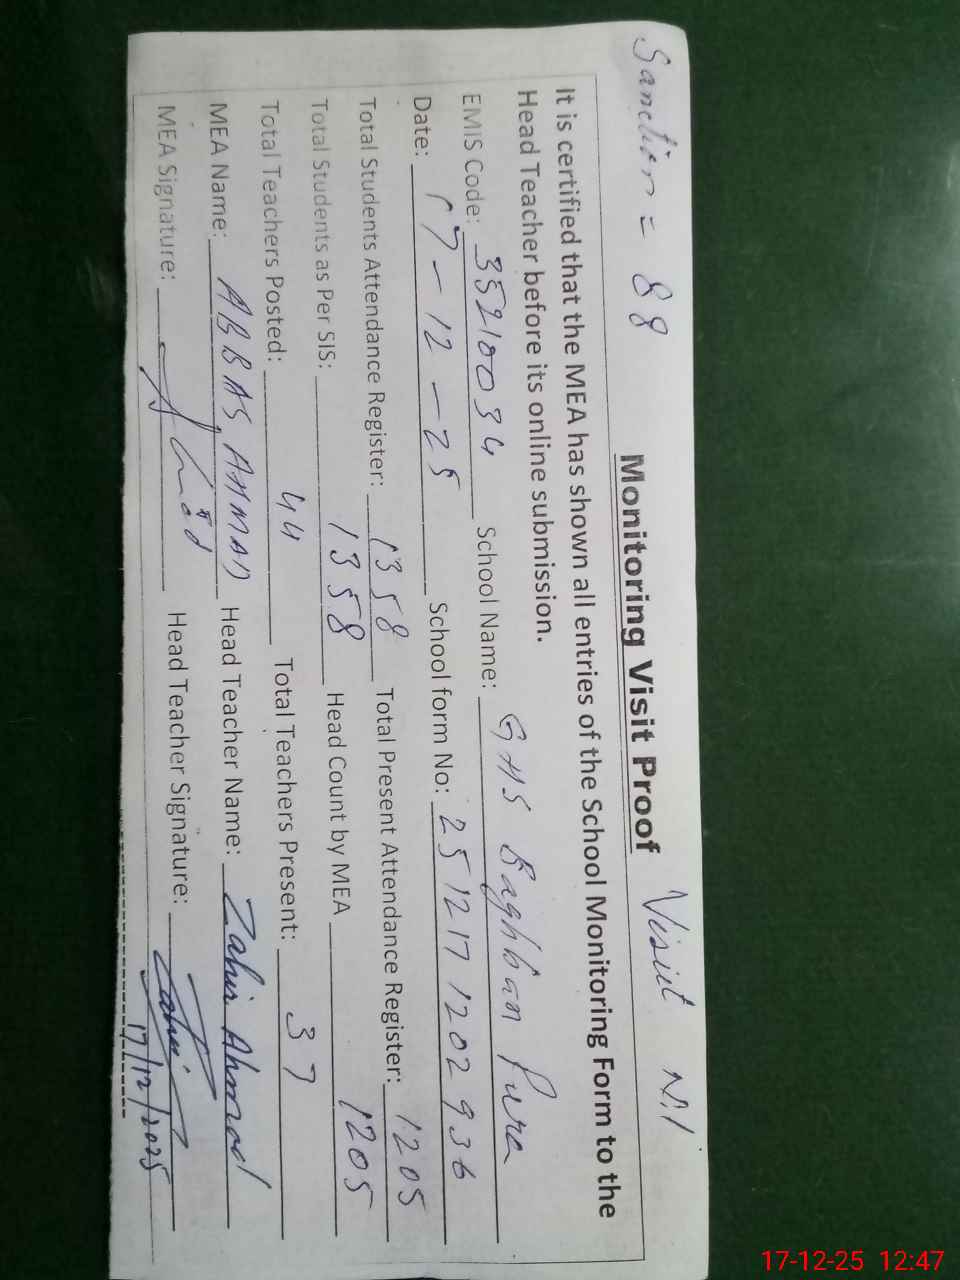 Sanction = 88
Monitoring Visit Proof Visit
It is certified that the MEA has shown all entries of the School Monitoring Form to the
Head Teacher before its online submission.
EMIS Code: 35210034 School Name: GHS Baghban Pura
Date: 17-12-25 School form No: 2512171202936
Total Students Attendance Register: 1358 Total Present Attendance Register: 1205
Total Students as Per SIS: 1358 Head Count by MEA 1205
Total Teachers Posted: 44 Total Teachers Present: 37
MEA Name: ABBAS AHMAD Head Teacher Name: Zahir Ahmad
MEA Signature: Head Teacher Signature:
17/12/2025
17-12-25 12:47